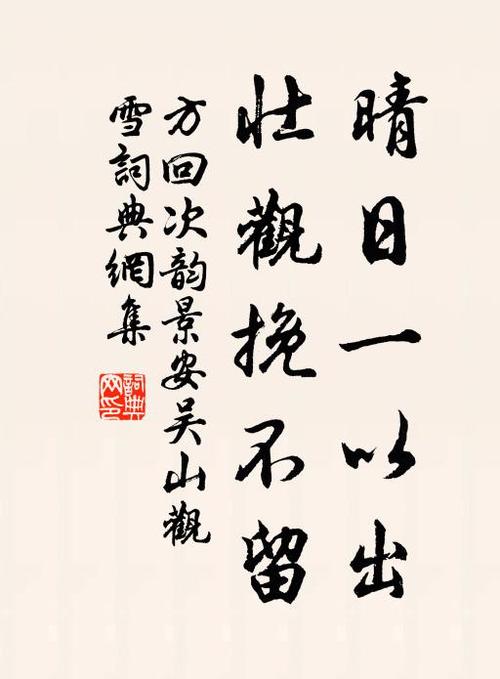 晴日一以出
壮觀挽不留
方回次韵景安吴山觀
雪詞典網集
詞典
网印